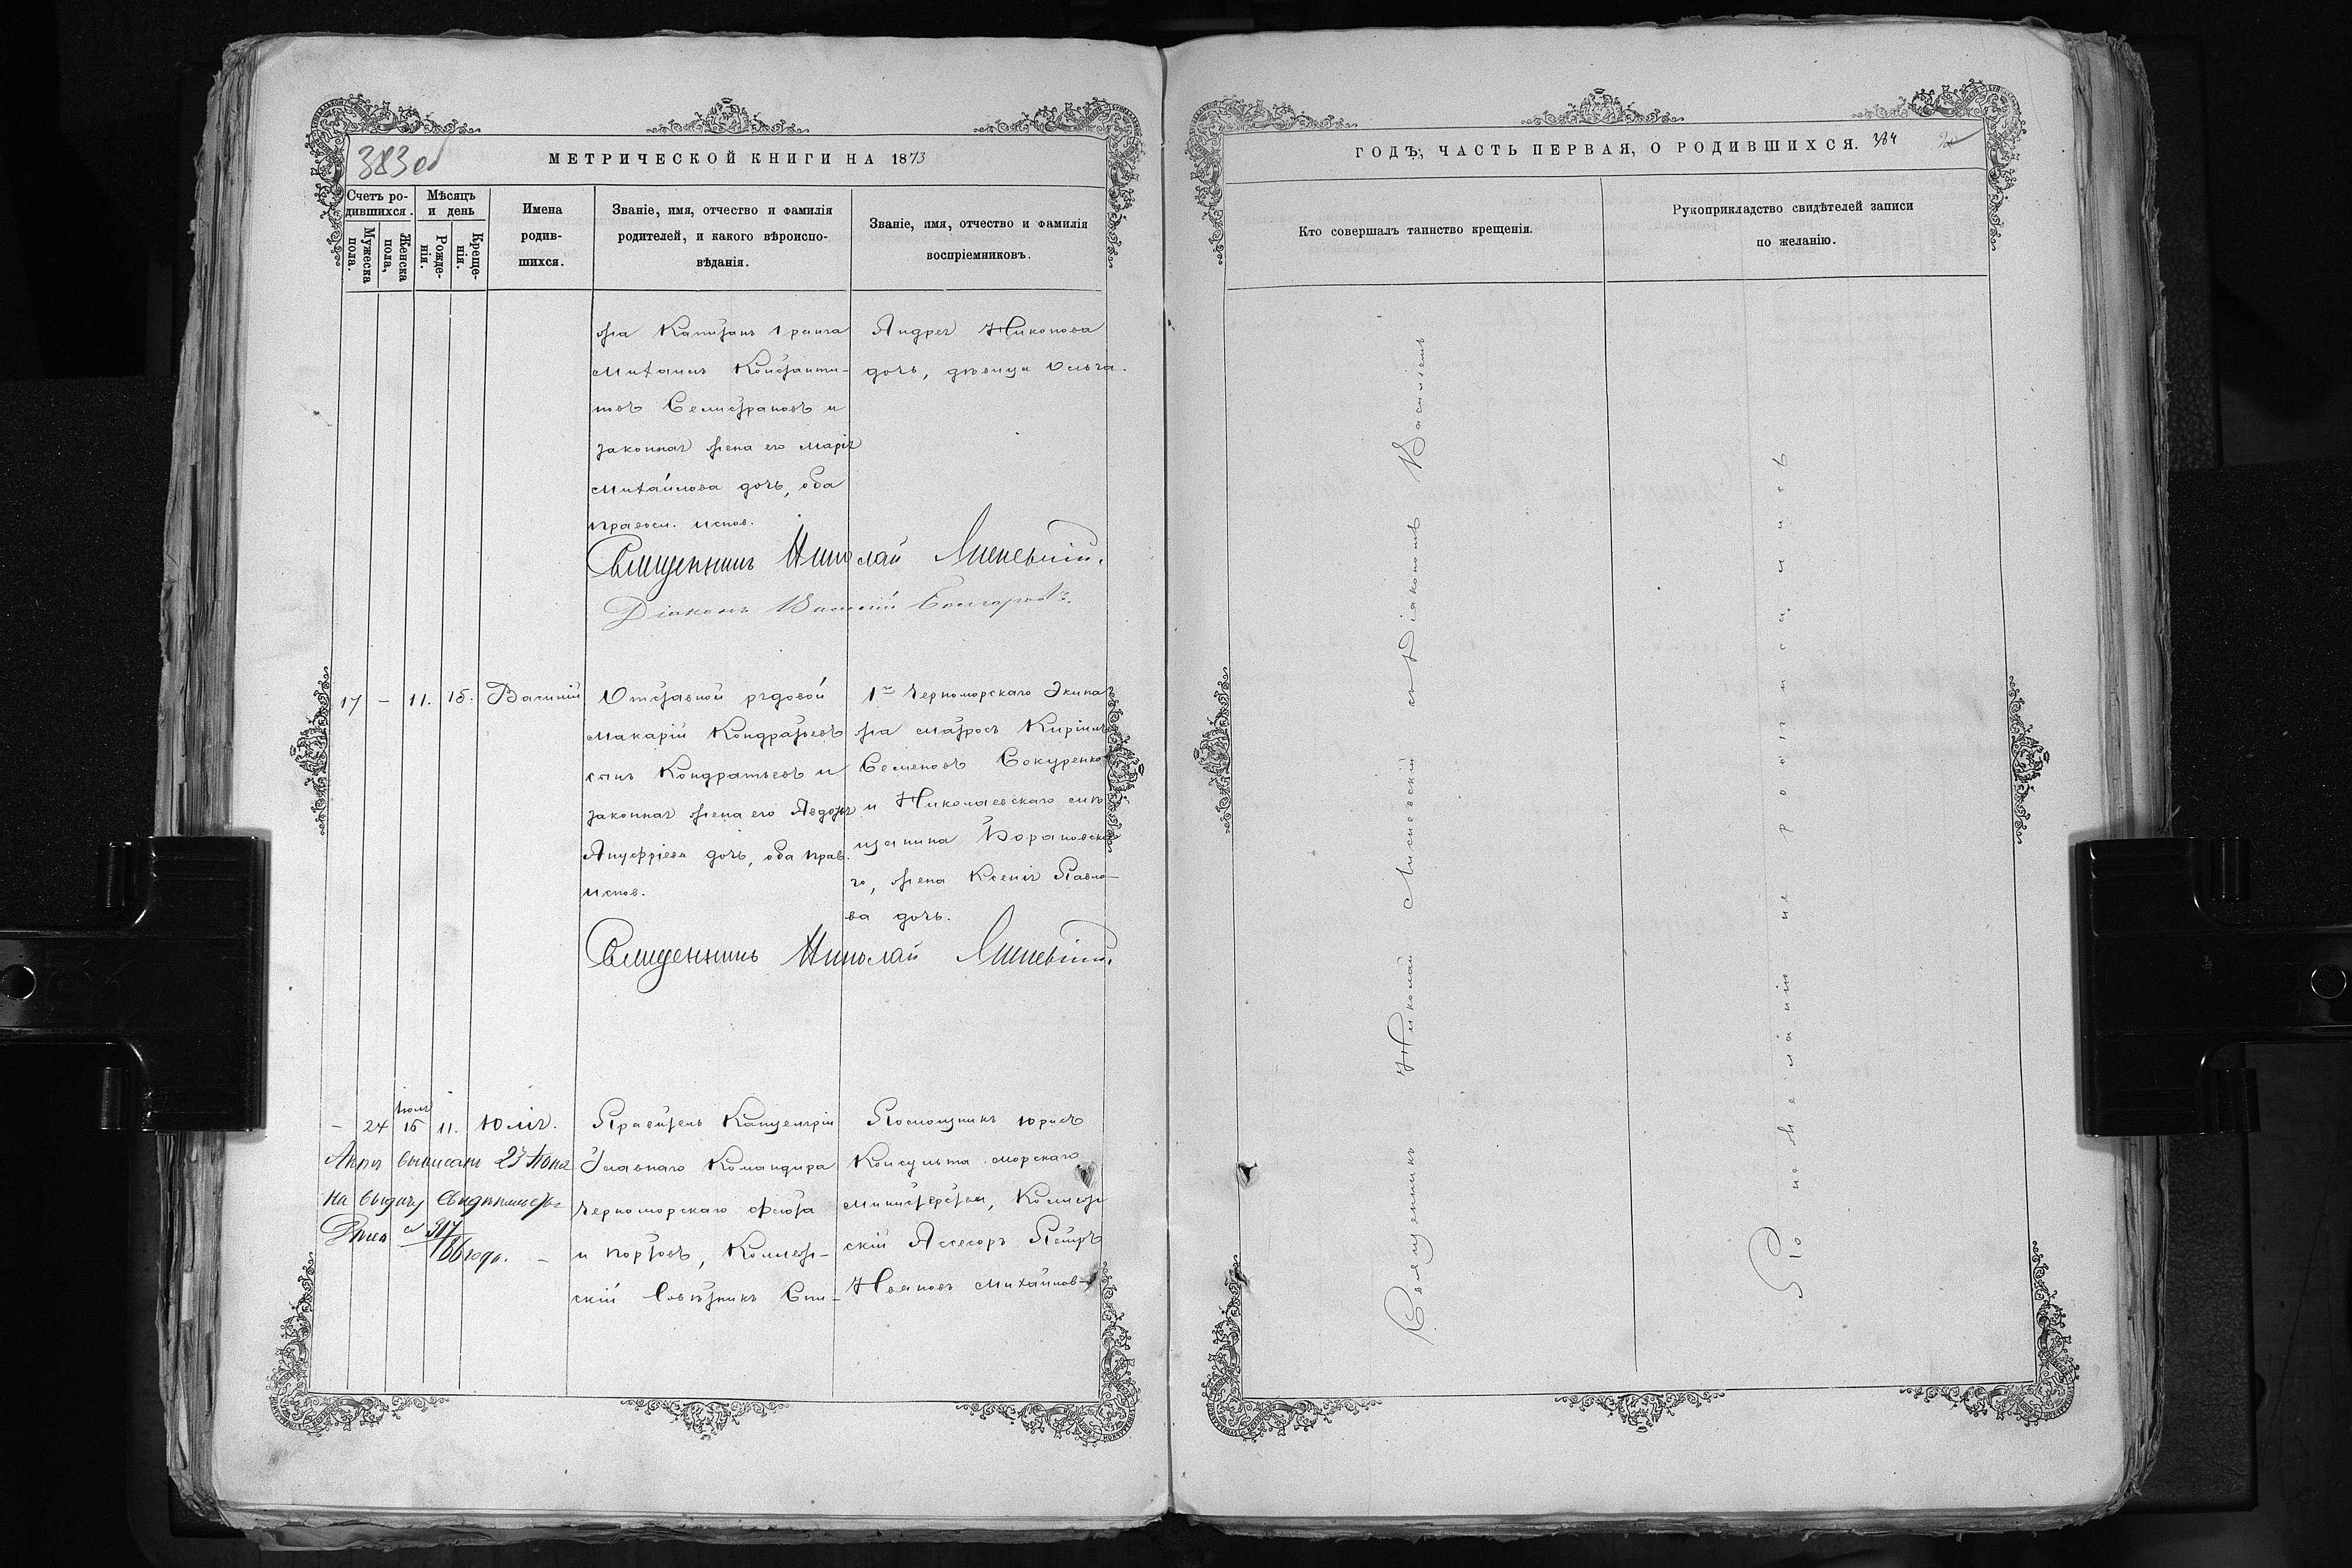 383 об
МЕТРИЧЕСКОЙ КНИГИ НА 1873
Счетъ родившихся.
Мужеска пола.
Женска пола,
Мѣсяцъ и день
Рожденія.
Крещенія.
Имена родившихся.
Званіе, имя, отчество и фамилія
родителей, и какого вѣроиспо-
вѣданія.
Званіе, имя, отчество и фамилія
воспріемниковъ.
жа Капитанъ 1 ранга
Михаилъ Константи-
новъ Селистрановъ и
законная жена его Марія
Михайлова дочь, оба
правосл. испов.
Андрея Никонова
дочь, дѣвица Ольга.
Священникъ Николай Мисневскій.
Діаконъ Василій
17 – 11. 15. Василій
Отставной рядовой
Макарій Кондратьевъ
сынъ Кондратьевъ и
законная жена его Авдотья
Ануфріева дочь, оба прав.
испов.
1го Черноморскаго Экипа
жа матросъ Кириллъ
Семеновъ Сокуренко
и Николаевскаго мѣ
щанина Барановска
го, жена Ксенія Павло-
ва дочь.
Священникъ Николай Мисневскій.
– 24 Іюля 15 11. Юлія.
Актъ выписанъ 23 Іюня
на выдачу свидѣтельства
Дѣло № 317
86 года. –
Правитель Канцеляріи
Главнаго Командира
Черноморскаго флота
и портовъ, Коллеж-
скій Совѣтникъ Спи-
Помощникъ юрисъ
Консульта морскаго
Министерства, Коллеж
скій Ассесоръ Петръ
Ивановъ Михайлов-
ГОДЪ, ЧАСТЬ ПЕРВАЯ, О РОДИВШИХСЯ. 384
Кто совершалъ таинство крещенія.
Рукоприкладство свидѣтелей записи
по желанію.
Священникъ Николай Мисневскій съ Діякономъ Василіемъ
По нежеланію не росписались